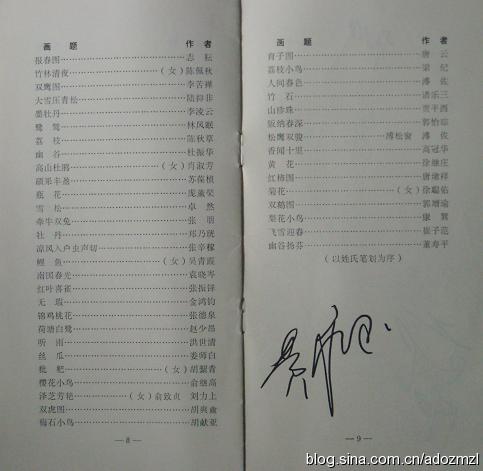 画　题　作　者
报春图……志　耘
竹林清夜……（女）陈佩秋
双鹰图……李苦禅
大雪压青松……陆抑非
墨牡丹……李凌云
鹭　鸶……林风眠
荔　枝……陈秋草
幽　谷……杜振华
高山杜鹃……（女）肖淑芳
硕果丰盈……苏葆桢
瓶　花……庞薰琹
雪　松……卓　然
牵牛双兔……张　朋
牡　丹……邓乃珖
凉风入户虫声切……张辛稼
鲤　鱼……（女）吴青霞
南国春光……袁晓岑
红叶喜雀……张振铎
无　瑕……金鸿钧
锦鸡桃花……张德泉
荷塘白鹭……赵少昂
听　雨……洪世清
丝　瓜……娄师白
枇　杷……（女）胡絜青
樱花小鸟……俞继高
泽芝芳艳……（女）俞致贞　刘力上
双虎图……胡爽盦
梅石小鸟……胡献亚
—8—
画　题　作　者
育子图……唐　云
荔枝小鸟……梁　纪
人间春色……溥　佐
竹　石……诸乐三
山珍珠……贾平西
版纳春深……郭怡孮
松鹰双骏……溥松窗　溥　佐
香闻十里……高冠华
黄　花……徐继庄
红柿图……唐继祥
菊花……（女）徐聪佑
双鹤图……郭增瑜
梨花小鸟……康　巽
飞雪迎春……崔子范
幽谷扬芬……董寿平
（以姓氏笔划为序）
—9—
blog.sina.com.cn/adozmzl